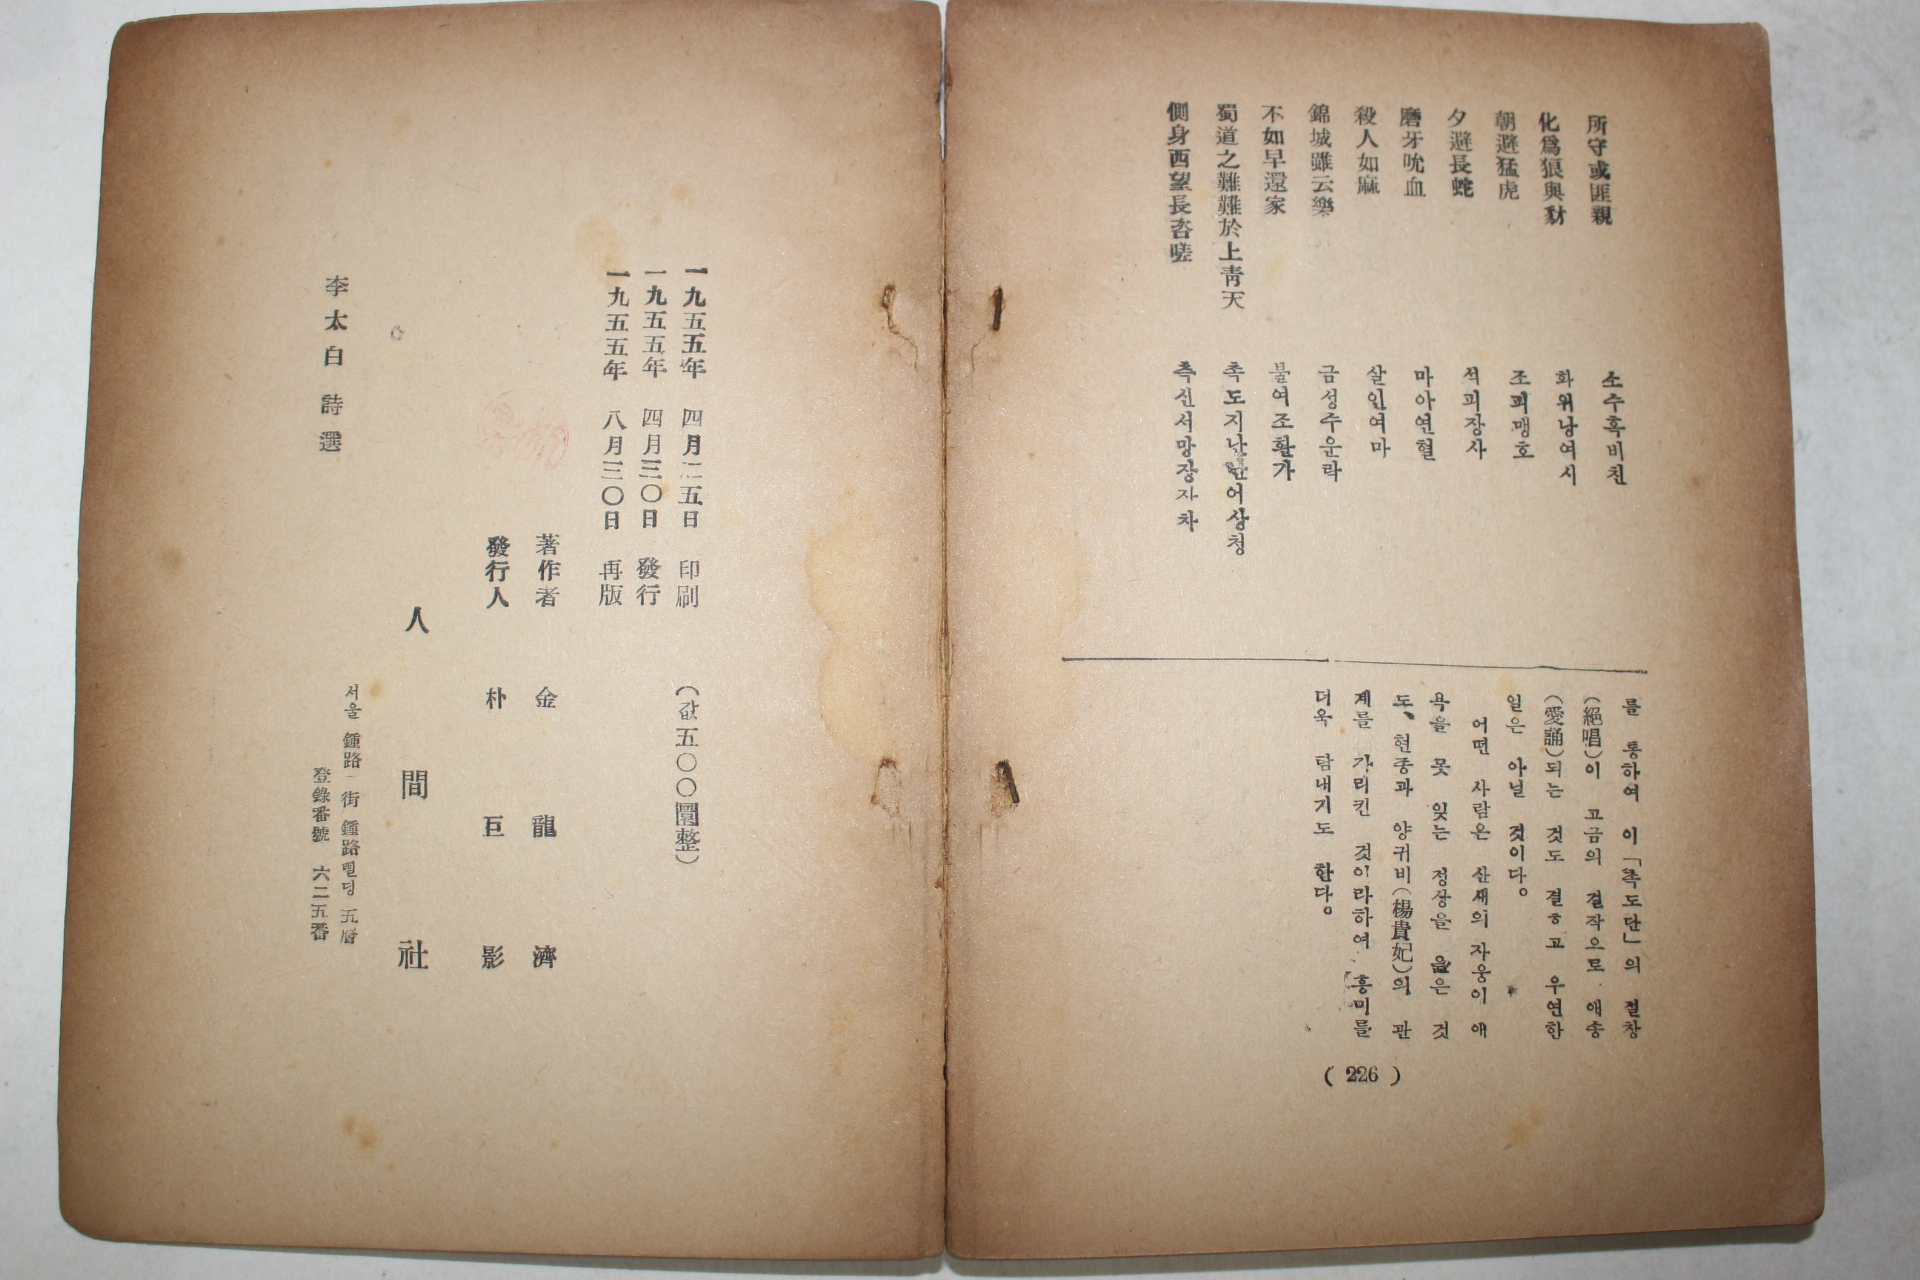 所守或匪親
化爲狼與豺
朝避猛虎
夕避長蛇
磨牙吮血
殺人如麻
錦城雖云樂
不如早還家
蜀道之難難於上靑天
側身西望長咨嗟
소수혹비친
화위낭여시
조피맹호
석피장사
마아연혈
살인여마
금성수운락
불여조환가
촉도지난난어상청
측신서망장자차
를 통하여 이 「촉도단」의 절창
(絕唱)이 고금의 걸작으로 애송
(愛誦)되는 것도 결ㅎ고 우연한
일은 아닐 것이다。
어떤 사람은 산새의 자웅이 애
욕을 못 잊는 정상을 읊은 것
도、현종과 양귀비(楊貴妃)의 관
계를 가리킨 것이라하여 흥미를
더욱 탐내기도 한다。
( 226 )
一九五五年 四月二五日 印刷
一九五五年 四月三〇日 發行
一九五五年 八月三〇日 再版
(값 五〇〇圜整)
著作者 金龍濟
發行人 朴巨影
人間社
서울 鍾路一街 鍾路삘딍 五層
登錄番號 六二五番
李太白詩選